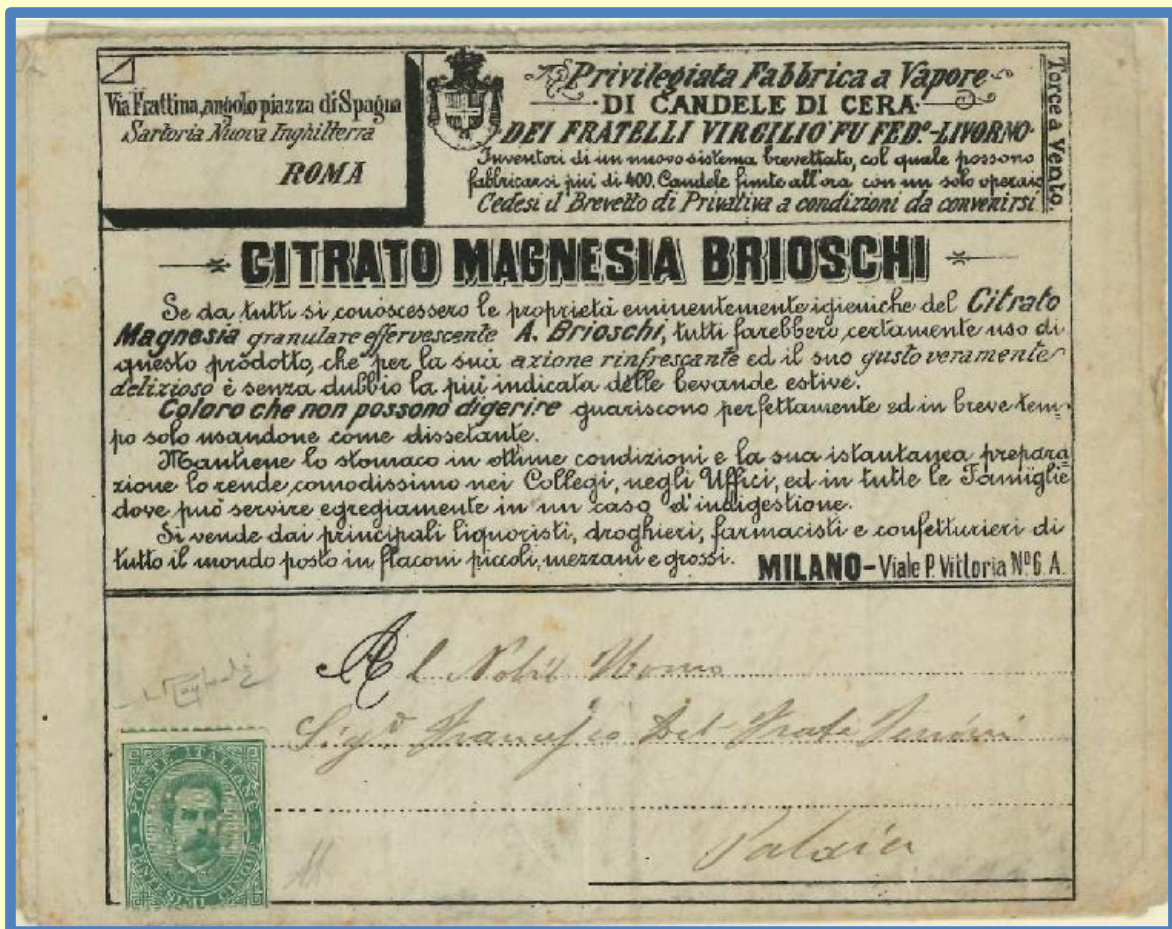 Via Frattina, angolo piazza di Spagna
Sartoria Nuova Inghilterra
ROMA
Privilegiata Fabbrica a Vapore
DI CANDELE DI CERA
DEI FRATELLI VIRGILIO FU FED.º-LIVORNO
Inventori di un nuovo sistema brevettato, col quale possono
fabbricarsi più di 400. Candele finite all'ora con un solo operaio
Cedesi il Brevetto di Privativa a condizioni da convenirsi
Torce a Vento
CITRATO MAGNESIA BRIOSCHI
Se da tutti si conoscessero le proprietà eminentemente igieniche del Citrato
Magnesia granulare effervescente A. Brioschi, tutti farebbero certamente uso di
questo prodotto, che per la sua azione rinfrescante ed il suo gusto veramente
delizioso è senza dubbio la più indicata delle bevande estive.
Coloro che non possono digerire guariscono perfettamente ed in breve tem-
po solo usandone come dissetante.
Mantiene lo stomaco in ottime condizioni e la sua istantanea prepara-
zione lo rende comodissimo nei Collegi, negli Uffici, ed in tutte le Famiglie
dove può servire egregiamente in un caso d'indigestione.
Si vende dai principali liquoristi, droghieri, farmacisti e confetturieri di
tutto il mondo posto in flaconi piccoli, mezzani e grossi.
MILANO-Viale P. Vittoria Nº 6. A.
Al Nobil Uomo
Sigr Francesco Del Frate
Palaia
POSTE ITALIANE
CENTESIMI CINQUE